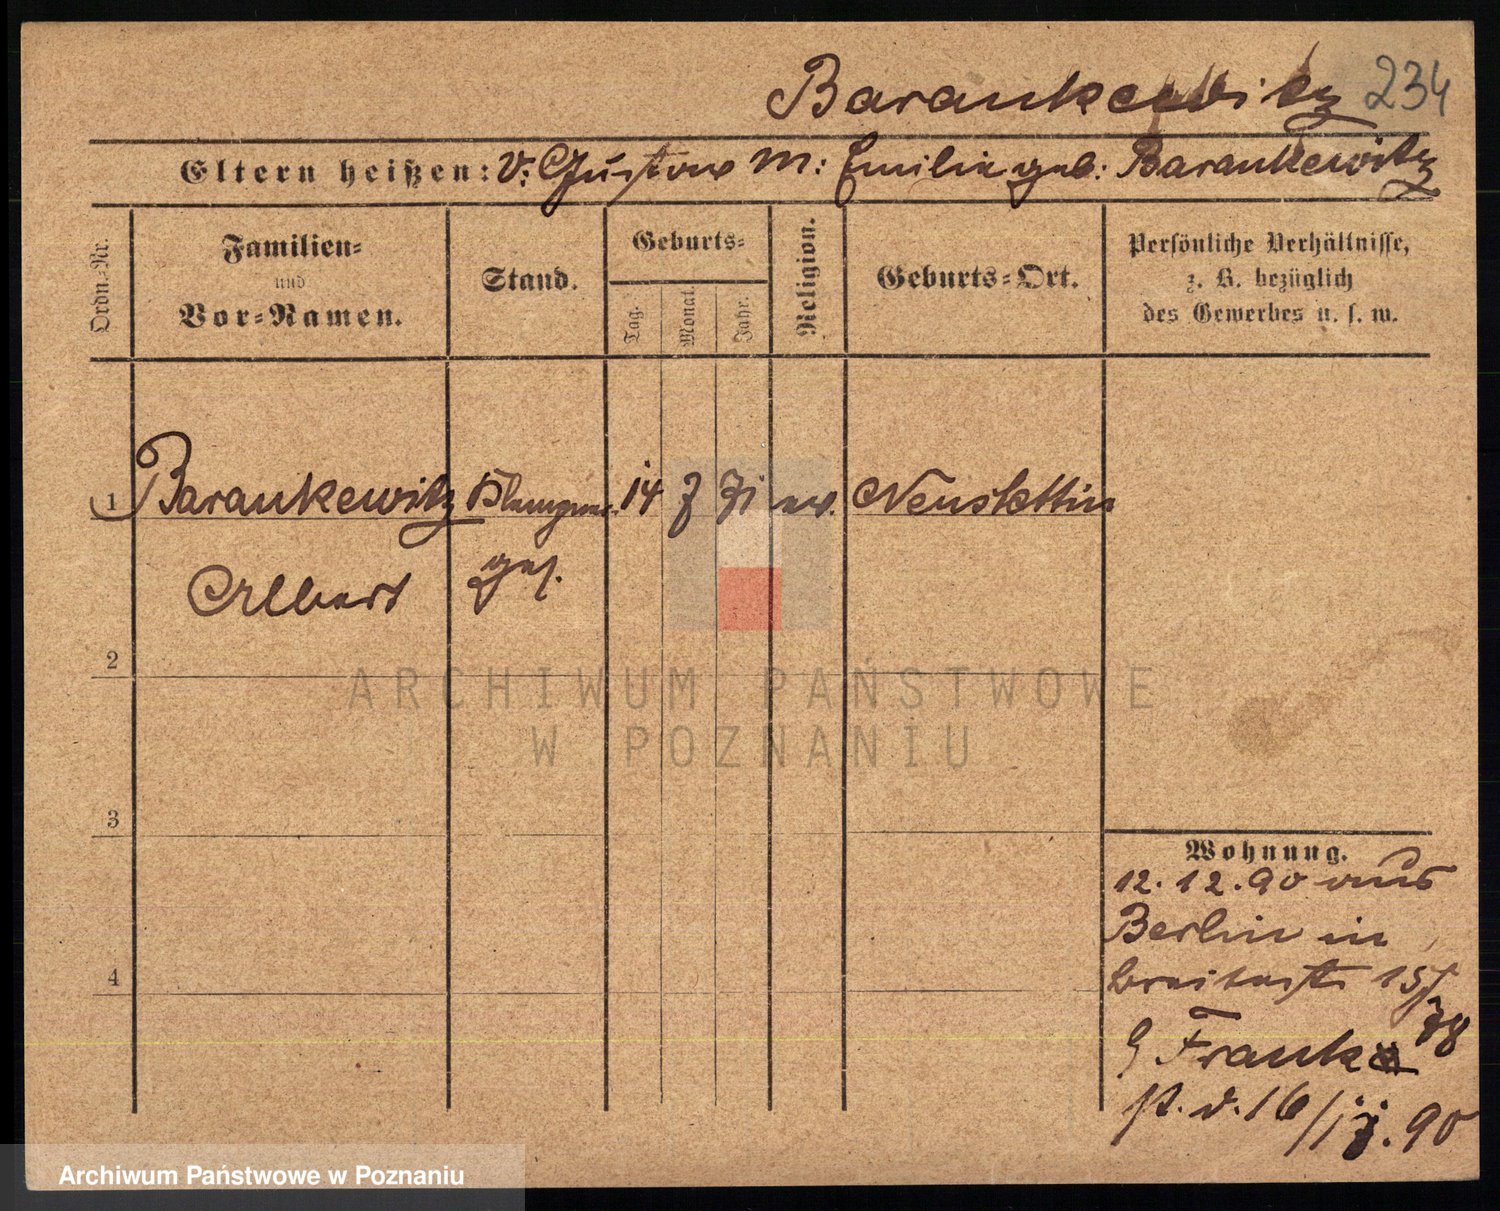 Barankewitz 234
Eltern heißen: V: Gustav M: Emilie geb: Barankewitz
Ordn.-Nr.
Familien-
und
Vor-Namen.
Stand.
Geburts-
Tag.
Monat.
Jahr.
Religion.
Geburts-Ort.
Persönliche Verhältnisse,
z. B. bezüglich
des Gewerbes u. s. w.
1 Barankewitz 14 7 71 ev. Neustettin
Albert
2
3
4
Wohnung.
12.12.90 aus
Berlin in
Breitestr 15
Frank
16/12.90
ARCHIWUM PAŃSTWOWE
W POZNANIU
Archiwum Państwowe w Poznaniu